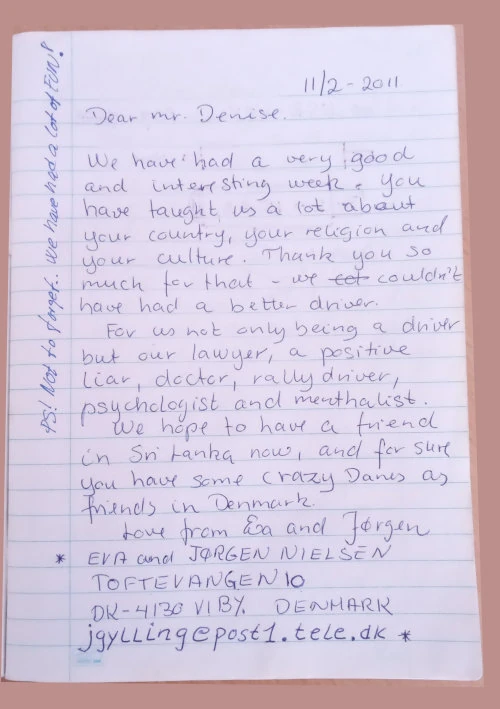 11/2 - 2011
Dear mr. Denise.
We have had a very good
and interesting week. You
have taught us a lot about
your country, your religion and
your culture. Thank you so
much for that - we couldn't
have had a better driver.
For us not only being a driver
but our lawyer, a positive
liar, doctor, rally driver,
psychologist and menthalist.
We hope to have a friend
in Sri Lanka now, and for sure
you have some crazy Danes as
friends in Denmark.
Love from Eva and Jørgen
* EVA and JØRGEN NIELSEN
TOFTEVANGEN 10
DK-4130 VIBY. DENMARK
jgylling@post1.tele.dk *
PS! Not to forget.. we have had a lot of FUN!